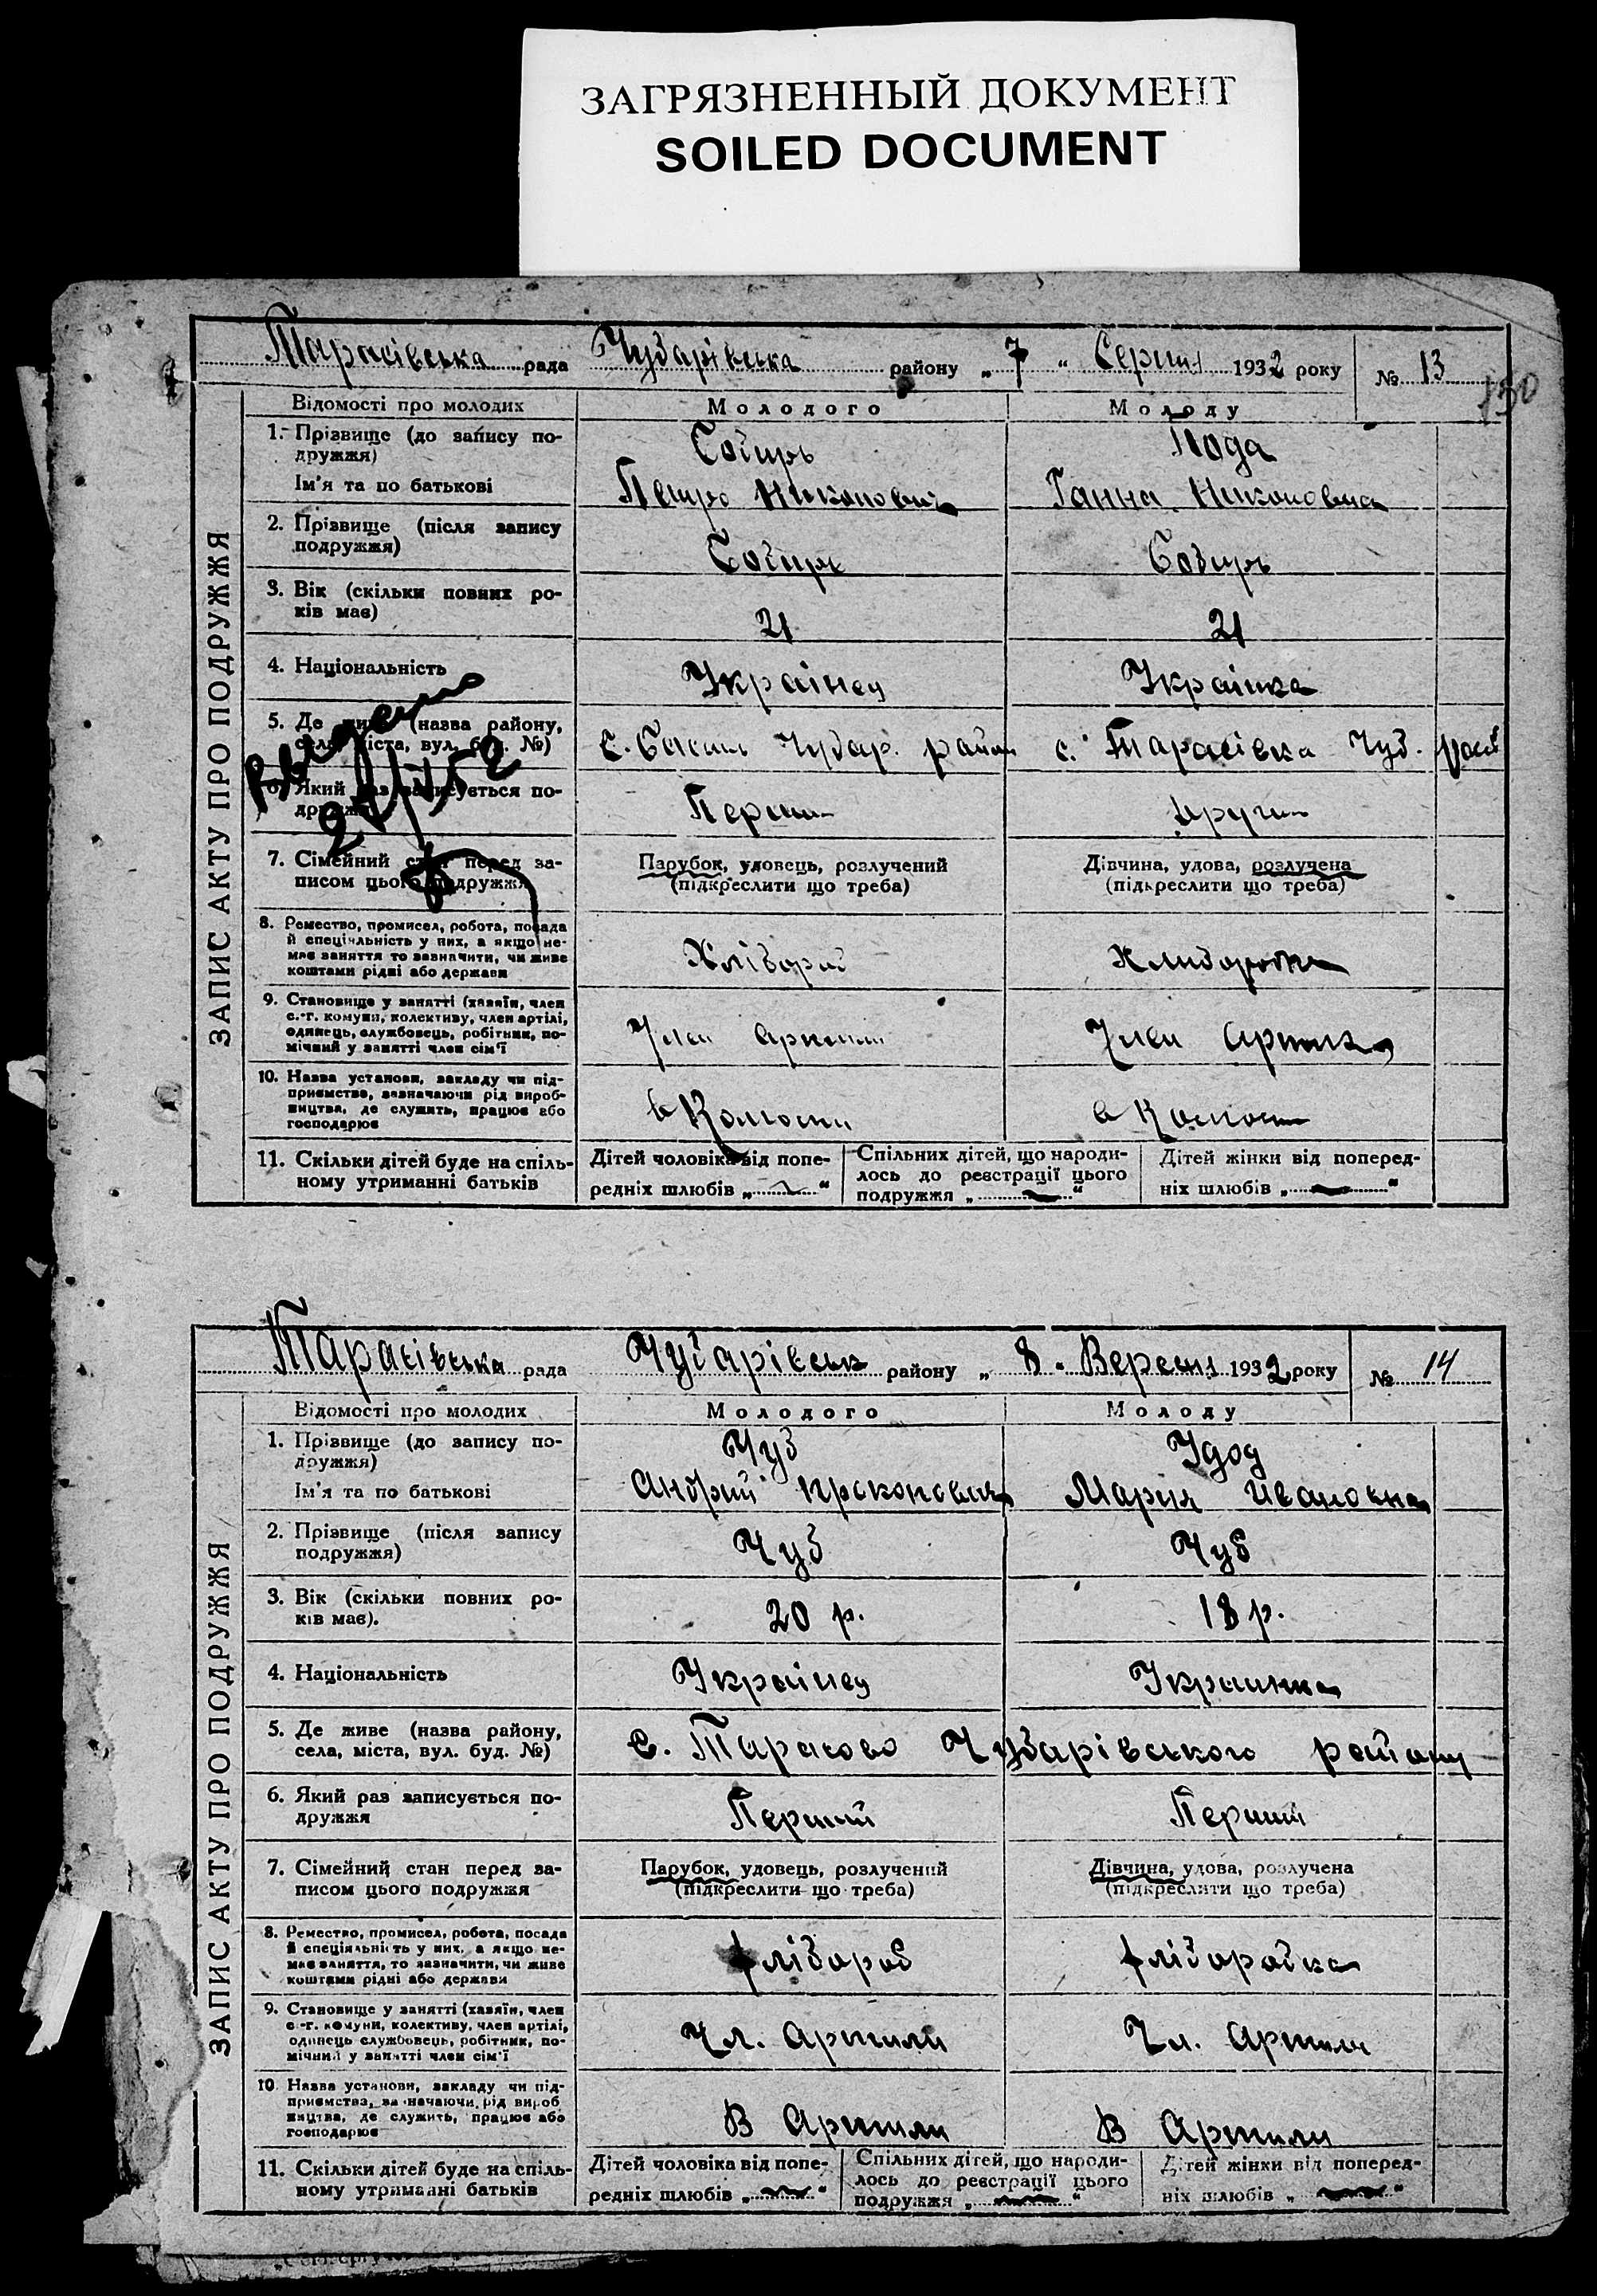 ЗАГРЯЗНЕННЫЙ ДОКУМЕНТ
SOILED DOCUMENT
Тарасівська рада Чубарівська району „ 7 “ Серпня 1932 року № 13
130
ЗАПИС АКТУ ПРО ПОДРУЖЖЯ
Відомості про молодих Молодого Молоду
1. Прізвище (до запису по-
дружжя) Пода
Ім'я та по батькові Петро Никонович Ганна Никоновна
2. Прізвище (після запису
подружжя)
3. Вік (скільки повних ро-
ків має) 21 21
4. Національність Українец Украінка
5. Де живе (назва району,
села, міста, вул. буд. №) с. Чубар. район с. Тарасівка Чуб. раой
6. Який раз записується по-
дружжя Перший другий
7. Сімейний стан перед за-
писом цього подружжя
Парубок, удовець, розлучений
(підкреслити що треба)
Дівчина, удова, розлучена
(підкреслити що треба)
8. Ремество, промисел, робота, посада
й спеціяльність у них, а якщо не-
має заняття то зазначити, чи живе
коштами рідні або держави
Хлібороб Хлиборобка
9. Становище у занятті (хазяїн, член
с.-г. комуни, колективу, член артілі,
одинець, службовець, робітник, по-
мічний у занятті член сім'ї
Член Артили Член Артили
10. Назва установи, закладу чи під-
приємства, зазначаючи рід вироб-
ництва, де служить, працює або
господарює
11. Скільки дітей буде на спіль-
ному утриманні батьків
Дітей чоловіка від попе-
редніх шлюбів „ “
Спільних дітей, що народи-
лось до реєстрації цього
подружжя „ “
Дітей жінки від поперед-
ніх шлюбів „ “
Тарасівська рада Чубарівськ району „ 8 „ Вересня 1932 року № 14
ЗАПИС АКТУ ПРО ПОДРУЖЖЯ
Відомості про молодих Молодого Молоду
1. Прізвище (до запису по-
дружжя) Чуб Удод
Ім'я та по батькові Андрий Прокопович Мария Ивановна
2. Прізвище (після запису
подружжя) Чуб Чуб
3. Вік (скільки повних ро-
ків має). 20 р. 18 р.
4. Національність Українец Украинка
5. Де живе (назва району,
села, міста, вул. буд. №) с. Тарасово Чубарівського району
6. Який раз записується по-
дружжя Перший Перший
7. Сімейний стан перед за-
писом цього подружжя
Парубок, удовець, розлучений
(підкреслити що треба)
Дівчина, удова, розлучена
(підкреслити що треба)
8. Ремество, промисел, робота, посада
й спеціяльність у них, а якщо не-
має заняття, то зазначити, чи живе
коштами рідні або держави
хлібороб хліборобка
9. Становище у занятті (хазяїн, член
с.-г. комуни, колективу, член артілі,
одинець службовець, робітник, по-
мічний у занятті член сім'ї
Чл. Артили Чл. Артили
10. Назва установи, закладу чи під-
приємства, зазначаючи рід вироб
ництва, де служить, працює або
господарює
В Артили В Артили
11. Скільки дітей буде на спіль-
ному утриманні батьків
Дітей чоловіка від попе-
редніх шлюбів „ “
Спільних дітей, що народи-
лось до реєстрації цього
подружжя „ “
Дітей жінки від поперед-
ніх шлюбів „ “